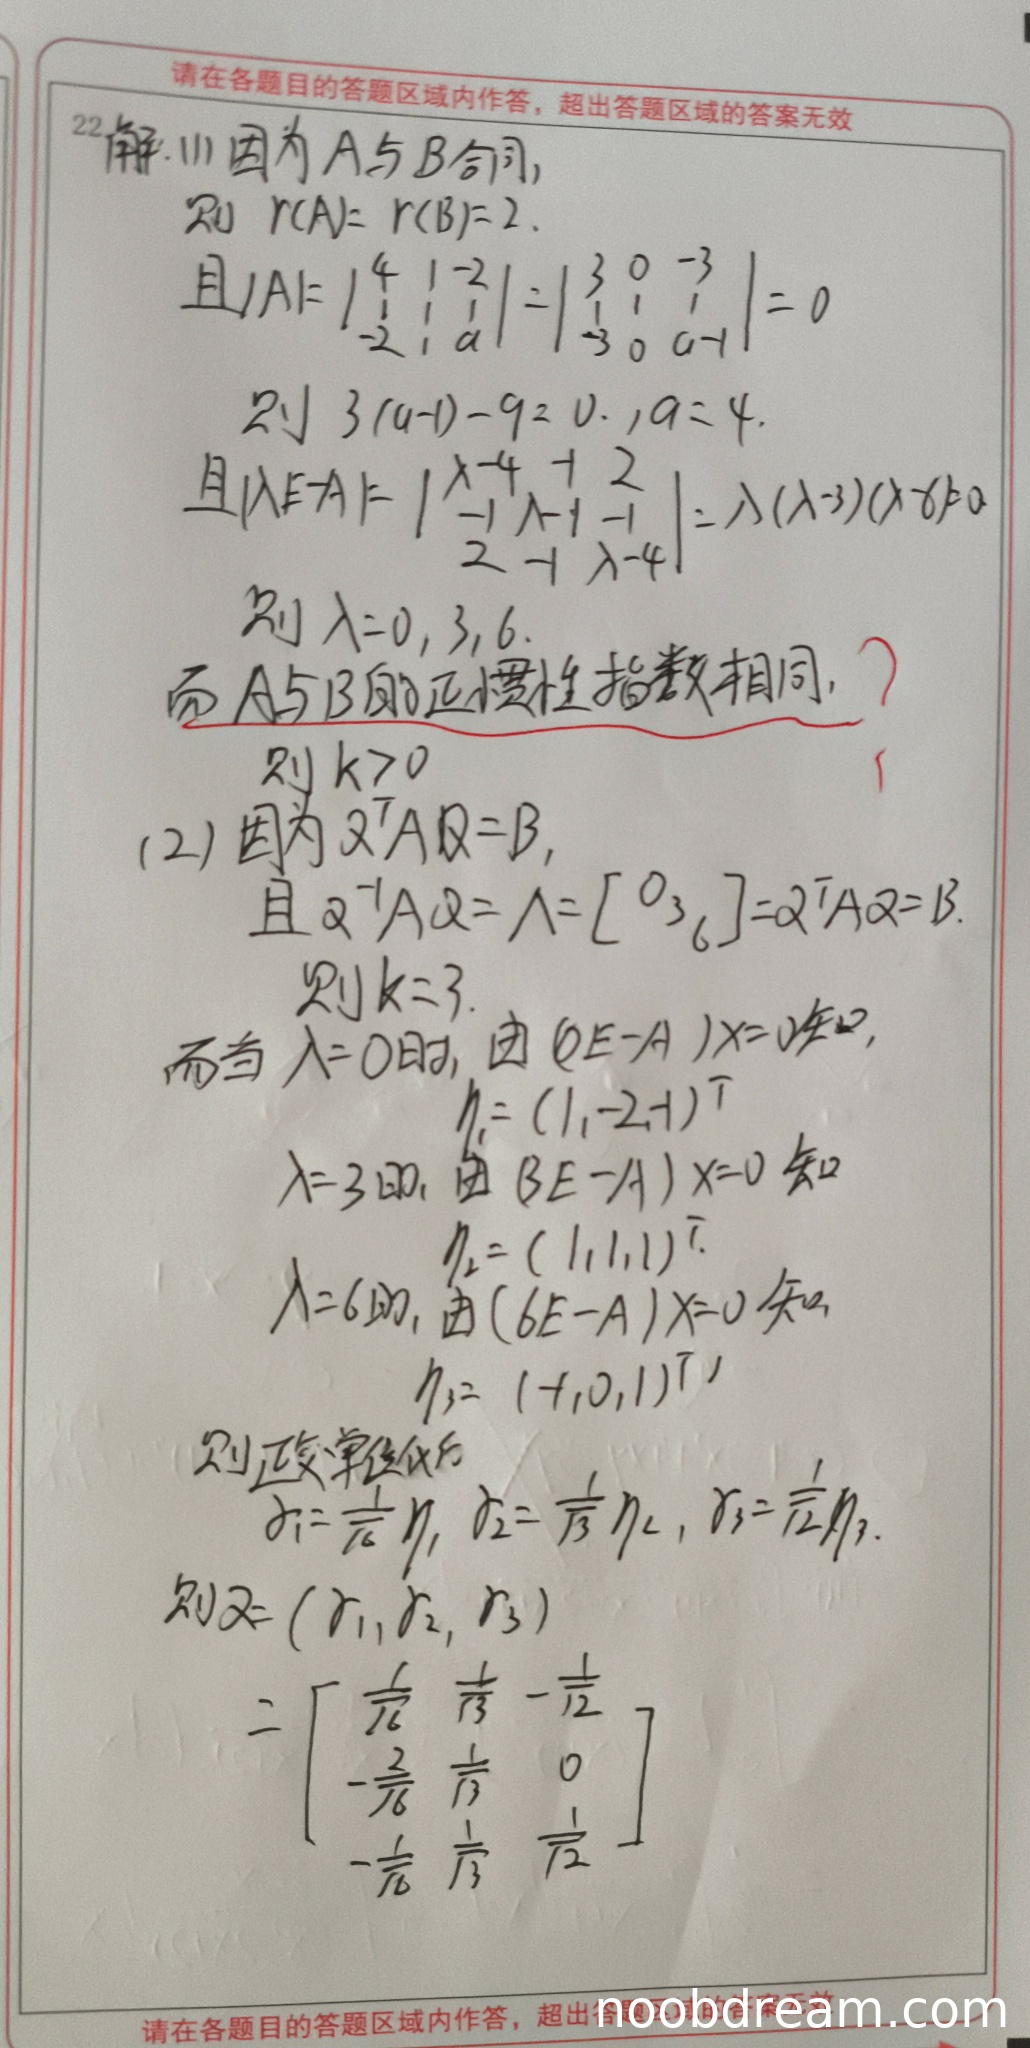 请在各题目的答题区域内作答，超出答题区域的答案无效
22 解.(1)因为A与B合同,
则 r(A)= r(B)=2.
且|A|= |4 1 -2; 1 1 1; -2 1 a| = |3 0 -3; 1 1 1; -3 0 a-1| = 0
则 3(a-1)-9=0.,a=4.
且|λE-A|= |λ-4 -1 2; -1 λ-1 -1; 2 -1 λ-4| = λ(λ-3)(λ-6)=0
则 λ=0,3,6.
而A与B的正惯性指数相同, ?
则 k>0
(2) 因为QᵀAQ=B,
且Q⁻¹AQ=Λ=[0 3 6]=QᵀAQ=B.
则k=3.
而当 λ=0时, 由 (0E-A)x=0知,
η₁=(1,-2,-1)ᵀ
λ=3时, 由 (3E-A)x=0 知
η₂=(1,1,1)ᵀ.
λ=6时, 由(6E-A)x=0 知,
η₃=(-1,0,1)ᵀ,
则正交单位化后
γ₁=1/√6 η₁ γ₂=1/√3 η₂, γ₃=1/√2 η₃.
则Q=(γ₁,γ₂,γ₃)
=[1/√6 1/√3 -1/√2
-2/√6 1/√3 0
-1/√6 1/√3 1/√2]
请在各题目的答题区域内作答，超出答题区域的答案无效
noobdream.com